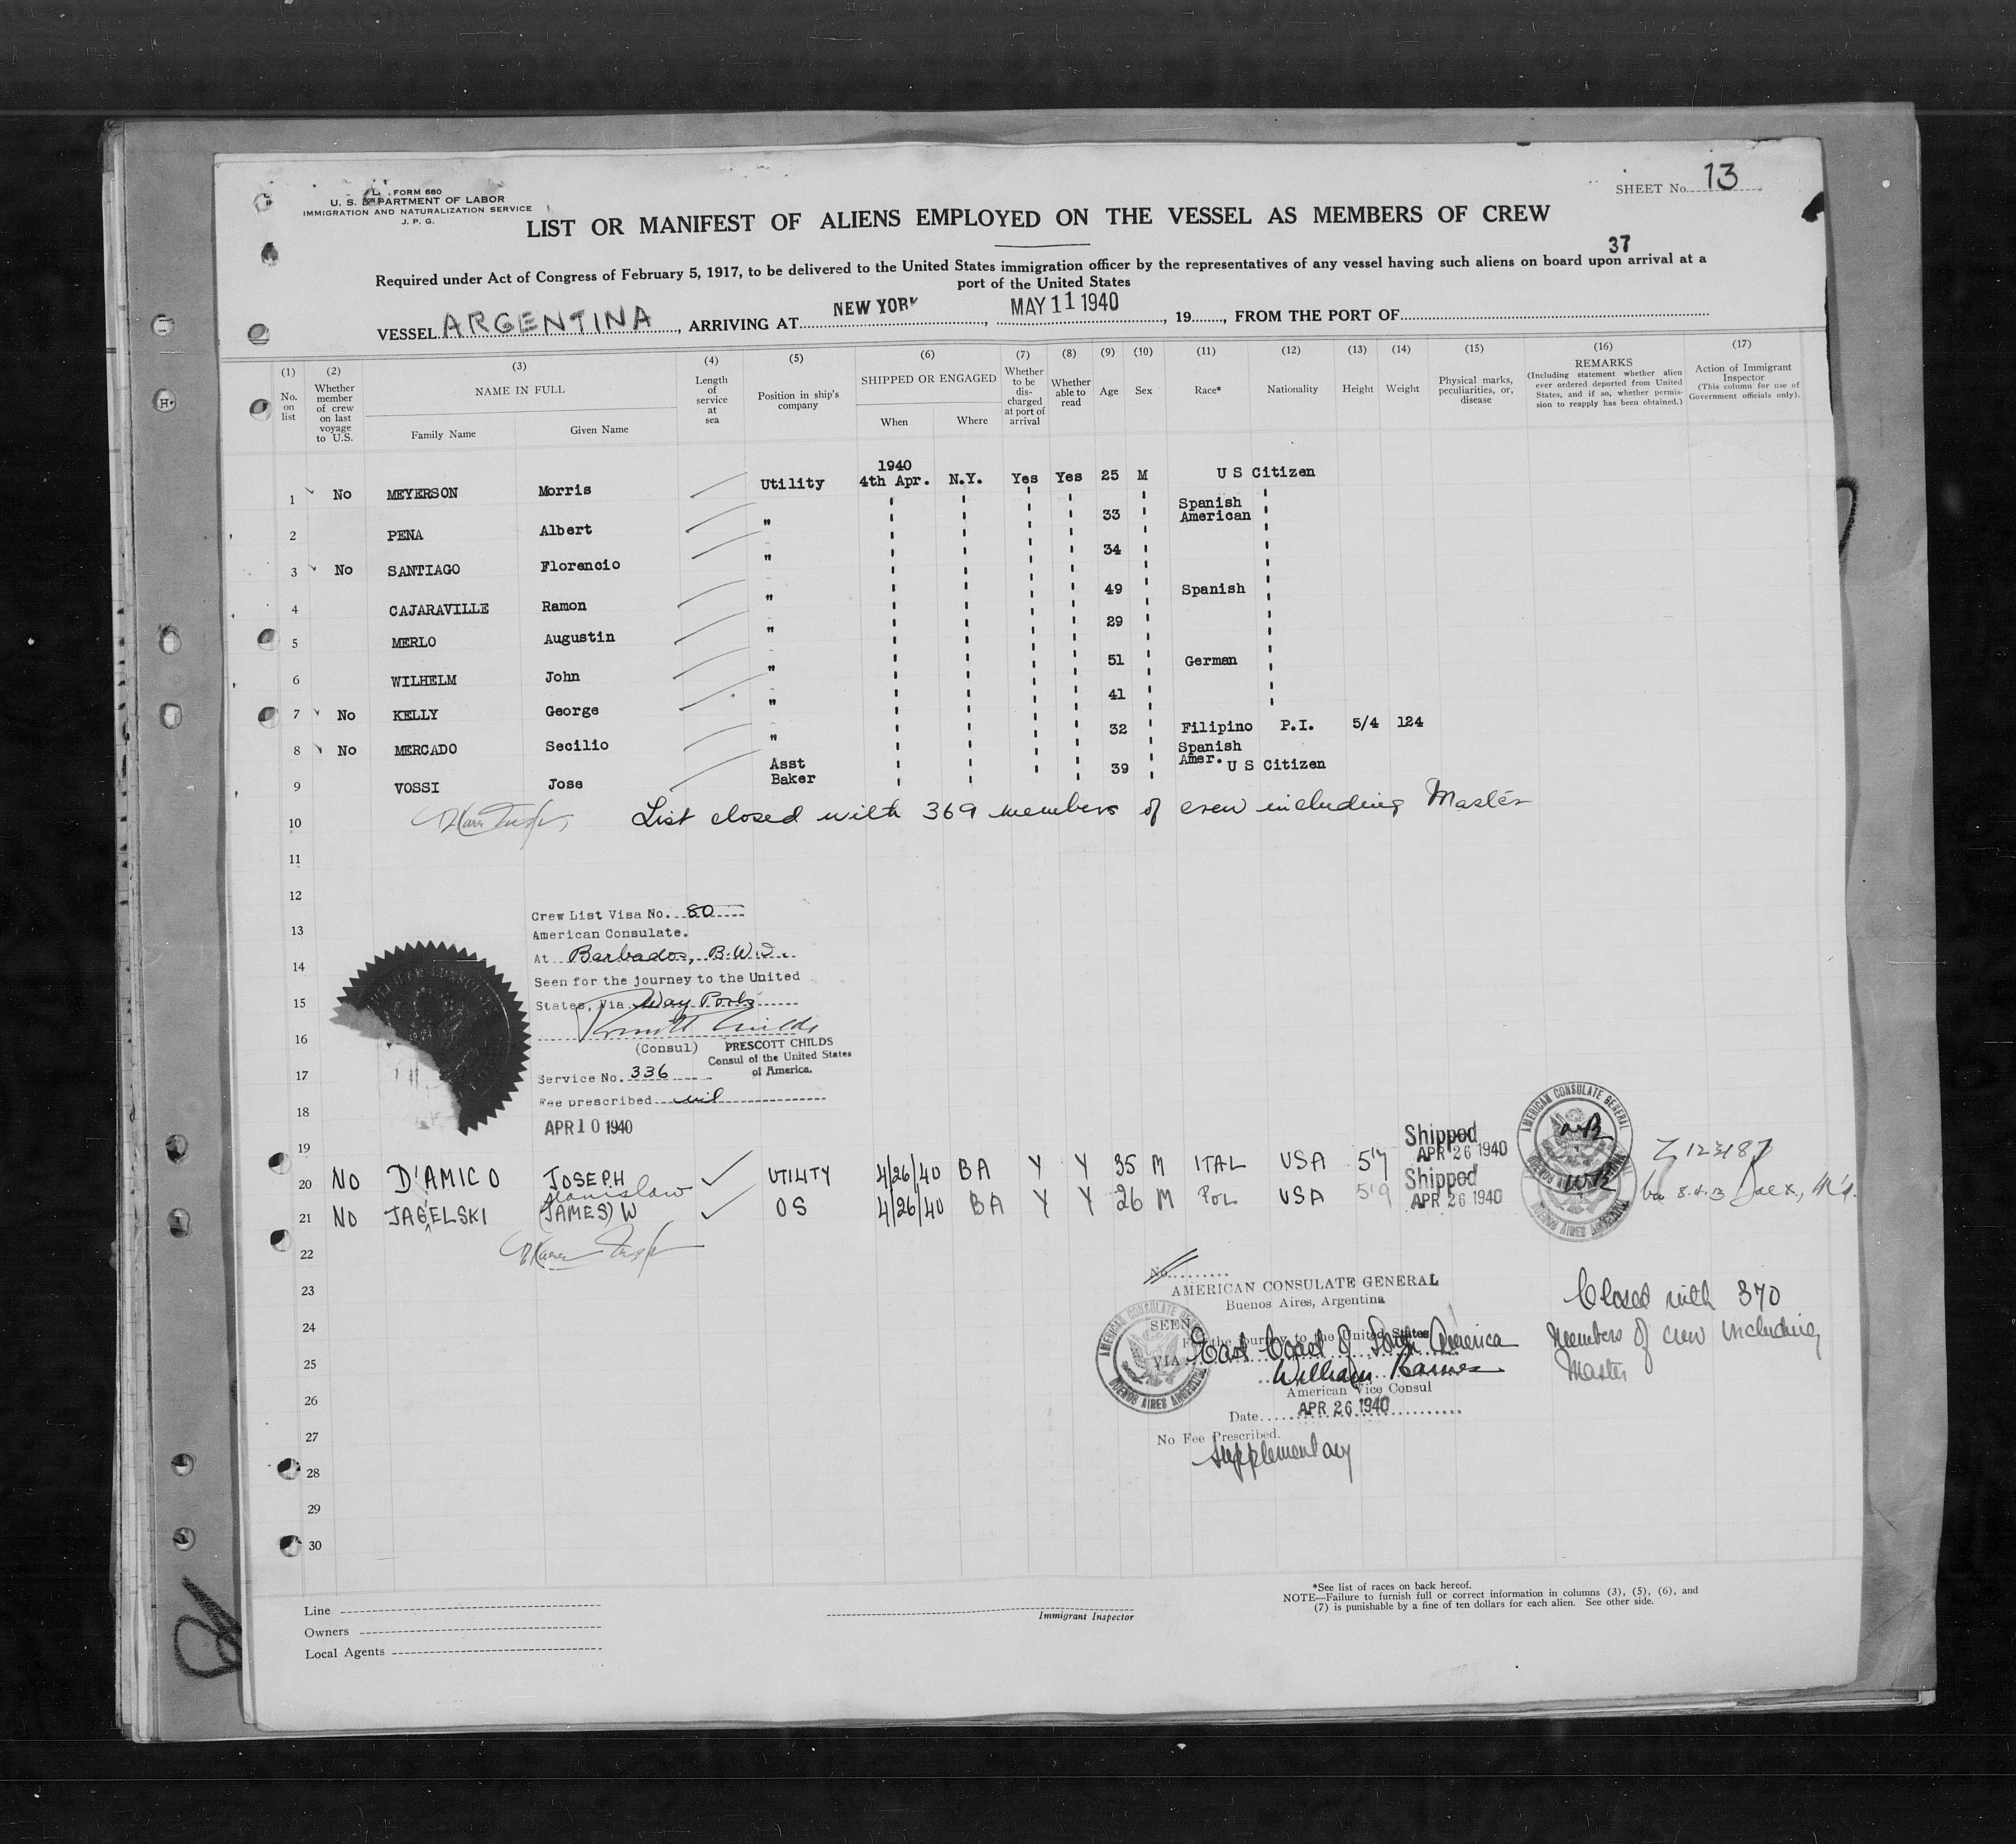 SHEET No. 13
FORM 680
U. S. DEPARTMENT OF LABOR
IMMIGRATION AND NATURALIZATION SERVICE
J. P. G.
LIST OR MANIFEST OF ALIENS EMPLOYED ON THE VESSEL AS MEMBERS OF CREW
37
Required under Act of Congress of February 5, 1917, to be delivered to the United States immigration officer by the representatives of any vessel having such aliens on board upon arrival at a
port of the United States
VESSEL ARGENTINA, ARRIVING AT NEW YORK, MAY 11 1940, 19, FROM THE PORT OF
(1) No. on list
(2) Whether member of crew on last voyage to U.S.
(3) NAME IN FULL
Family Name Given Name
(4) Length of service at sea
(5) Position in ship's company
(6) SHIPPED OR ENGAGED
When Where
(7) Whether to be discharged at port of arrival
(8) Whether able to read
(9) Age
(10) Sex
(11) Race*
(12) Nationality
(13) Height
(14) Weight
(15) Physical marks, peculiarities, or, disease
(16) REMARKS (Including statement whether alien ever ordered deported from United States, and if so, whether permission to reapply has been obtained.)
(17) Action of Immigrant Inspector (This column for use of Government officials only).
1 No MEYERSON Morris Utility 1940 4th Apr. N.Y. Yes Yes 25 M U S Citizen
2 PENA Albert " 33 Spanish American
3 No SANTIAGO Florencio " 34
4 CAJARAVILLE Ramon " 49 Spanish
5 MERLO Augustin " 29
6 WILHELM John " 51 German
7 No KELLY George " 41
8 No MERCADO Secilio " 32 Filipino P.I. 5/4 124
9 VOSSI Jose Asst Baker 39 Spanish Amer. U S Citizen
10 List closed with 369 members of crew including Master
11
12
Crew List Visa No. 80
13 American Consulate.
At Barbados, B.W.I.
14
Seen for the journey to the United
15 States, Via Way Ports
16
(Consul) PRESCOTT CHILDS
Consul of the United States
of America.
17 Service No. 336
Fee prescribed nil
18
APR 10 1940
19
20 NO D'AMICO JOSEPH UTILITY 4/26/40 BA Y Y 35 M ITAL USA 5'7 Shipped APR 26 1940
Stanislaw
21 NO JAGIELSKI (JAMES) W OS 4/26/40 BA Y Y 26 M POL USA 5'9 Shipped APR 26 1940
AMERICAN CONSULATE GENERAL
BUENOS AIRES ARGENTINA
WB
22
23
No.
AMERICAN CONSULATE GENERAL
Buenos Aires, Argentina
24
SEEN
For the journey to the United States
VIA East Coast of South America
25
William Barnes
American Vice Consul
26
Date APR 26 1940
27
No Fee Prescribed.
Supplementary
AMERICAN CONSULATE GENERAL
BUENOS AIRES ARGENTINA
Closed with 370
Members of crew including
Master
28
29
30
Line
Owners
Local Agents
Immigrant Inspector
*See list of races on back hereof.
NOTE—Failure to furnish full or correct information in columns (3), (5), (6), and
(7) is punishable by a fine of ten dollars for each alien. See other side.